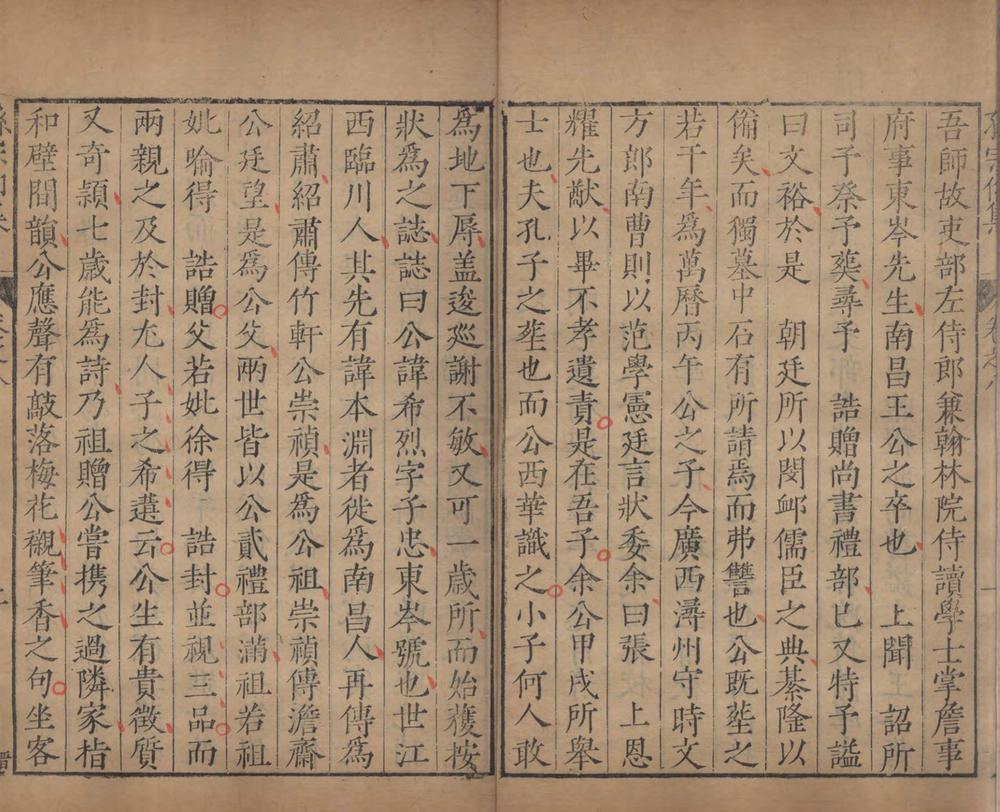 吾師故吏部左侍郎兼翰林院侍讀學士掌詹事
府事東岑先生南昌王公之卒也　上聞　詔所
司予祭予葬尋予　誥贈尚書禮部已又特予謚
曰文裕於是　朝廷所以閔卹儒臣之典綦隆以
備矣而獨墓中石有所請焉而弗讐也公既塟之
若干年為萬曆丙午公之子今廣西潯州守時文
方郎南曹則以范學憲廷言狀委余曰張　上恩
耀先猷以畢不孝遺責是在吾子余公甲戌所舉
士也夫孔子之塟也而公西華識之小子何人敢
為地下辱盖逡廵謝不敏又可一歲所而始獲按
狀為之誌誌曰公諱希烈字子忠東岑號也世江
西臨川人其先有諱本淵者徙為南昌人再傳為
紹肅紹肅傳竹軒公崇禎是為公祖崇禎傳澹齋
公廷望是為公父兩世皆以公貳禮部滿祖若祖
妣喻得　誥贈父若妣徐得　誥封並視三品而
兩親之及於封尢人子之希遘云公生有貴徵質
又奇頴七歲能為詩乃祖贈公嘗携之過隣家指
和壁間韻公應聲有敲落梅花襯筆香之句坐客